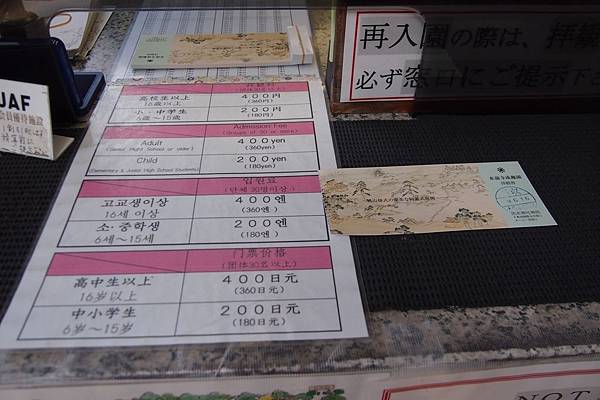 再入園の際は、拝観
必ず窓口にご提示下さ
JAF
高校生以上 400円
16歳以上 (360円)
小・中学生 200円
6歳～15歳 (180円)
Admission Fee
(Groups of 30 or more)
Adult 400yen
(Senior High School or older) (360yen)
Child 200yen
(Elementary & Junior High School Students) (180yen)
입원료
(단체 30명이상)
고교생이상 400엔
16세 이상 (360엔)
소·중학생 200엔
6세～15세 (180엔)
门票价格
(团体30名以上)
高中生以上 400日元
16岁以上 (360日元)
中小学生 200日元
6岁～15岁 (180日元)
水前寺成趣園
桃山様式の優美な回遊式庭園
NOT